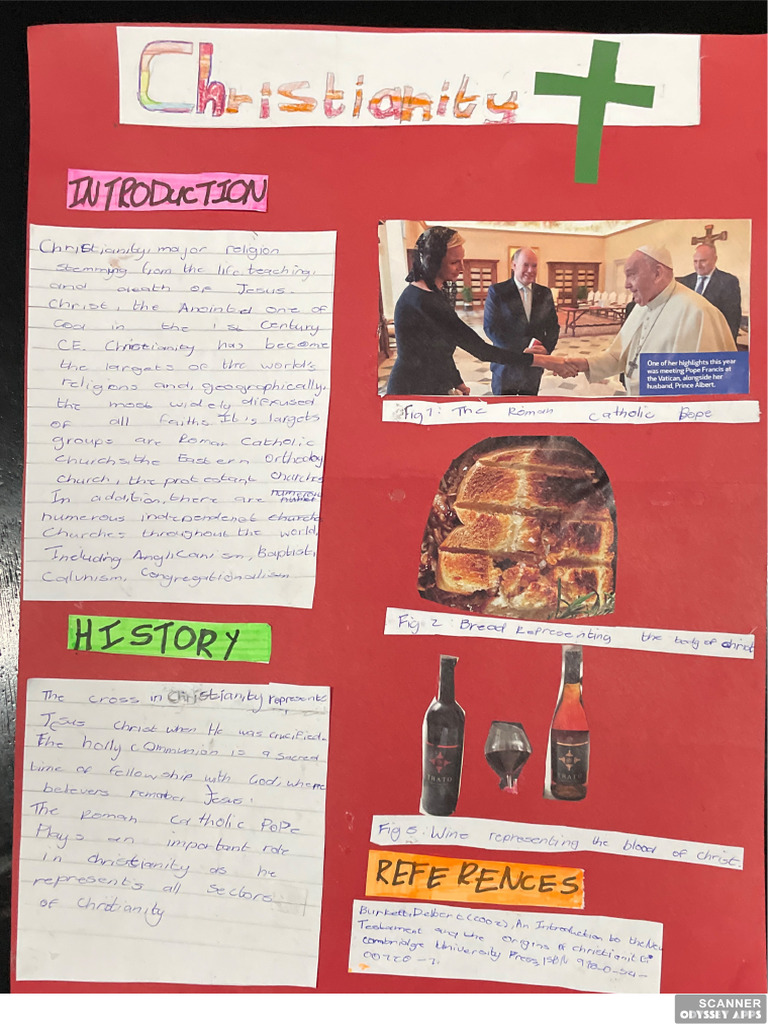 Christianity
INTRODUCTION
Christianity, major religion
stemming from the life, teaching,
and death of Jesus.
Christ, the Anointed one of
God in the 1st Century
CE. Christianity has become
the largets of the world's
religions and, geographically,
the most widely diffused
of all faiths. It is largets
groups are Roman Catholic
Church, the Eastern Orthodoxy
Church, the protestant churches
In addition, there are numerous
numerous independenet church
Churches throughout the world,
Including Anglicanism, Baptist,
Calvinism, Congregationalism
HISTORY
The cross in Christianity represents
Jesus Christ when He was crucified.
The holly communion is a sacred
time of fellowship with God, where
believers remember Jesus.
The Roman Catholic Pope
Plays an important role
in christianity as he
represents all sectors
of Chritianity
One of her highlights this year
was meeting Pope Francis at
the Vatican, alongside her
husband, Prince Albert.
Fig 1: The Roman Catholic Pope
Fig 2: Bread Representing the body of christ
TRATO
TRATO
Fig 5: Wine representing the blood of christ.
REFERENCES
Burkett, Delbert An Introduction to the New
Testament and the origins of christianiti
Cambridge University Press, ISBN 978-0-521-
00720-7.
SCANNER
ODYSSEY APPS